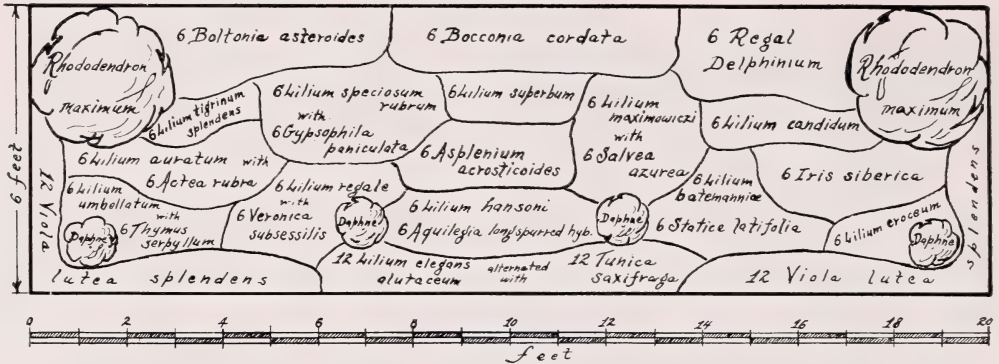 6 Boltonia asteroides
6 Bocconia cordata
6 Regal
Delphinium
Rhododendron
maximum
Rhododendron
maximum
6 Lilium tigrinum
splendens
6 Lilium speciosum
rubrum
with
6 Gypsophila
paniculata
6 Lilium superbum
6 Lilium
maximowiczi
with
6 Salvea
azurea
6 Lilium candidum
6 Lilium auratum with
6 Actea rubra
6 Asplenium
acrosticoides
6 Iris siberica
6 Lilium
umbollatum
with
6 Thymus
serpyllum
6 Lilium regale
with
6 Veronica
subsessilis
6 Lilium hansoni
6 Aquilegia long spurred hyb.
6 Lilium
batemanniæ
6 Statice latifolia
6 Lilium croceum
Daphne
Daphne
Daphne
Daphne
12 Viola
lutea splendens
12 Lilium elegans
alutaceum
alternated
with
12 Tunica
saxifraga
12 Viola lutea
splendens
6 feet
0 2 4 6 8 10 12 14 16 18 20
feet